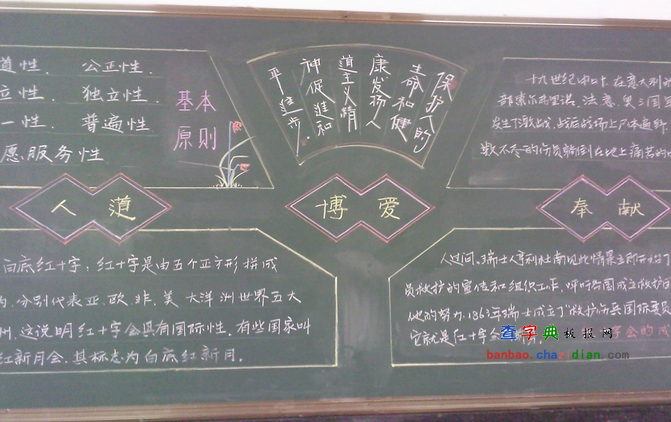 道性. 公正性.
立性. 独立性.
一性. 普遍性
愿服务性
基本
原则
保护人的
生命和健
康发扬人
道主义精
神促进和
平进步.
十九世纪中叶,在意大利
部索尔弗里诺,法、意、奥三国
发生了激战,战后战场上尸体遍野
数不尽的伤员躺倒在地上痛苦的
人道
博爱
奉献
白底红十字:红十字是由五个正方形拼成
分别代表亚、欧、非、美、大洋洲世界五大
洲.这说明红十字会具有国际性.有些国家叫
红新月会.其标志为白底红新月.
人过问.瑞士人亨利杜南见此情景立即
员救护的宣传和组织工作.呼吁各国成立救护
他的努力.1863年瑞士成立了救护伤兵国际委员
它就是红十字会
字会的
查字典板报网
banbao.chazidian.com